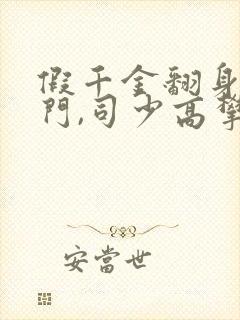 假千金翻身
門,司少高攀
安當世